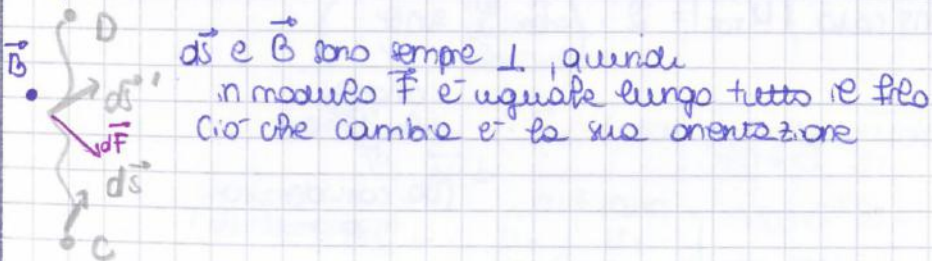 D
B⃗
ds⃗ e B⃗ sono sempre ⊥, quindi
in modulo F⃗ è uguale lungo tutto il filo
Ciò che cambia è la sua orientazione
ds⃗'
dF⃗
ds⃗
C